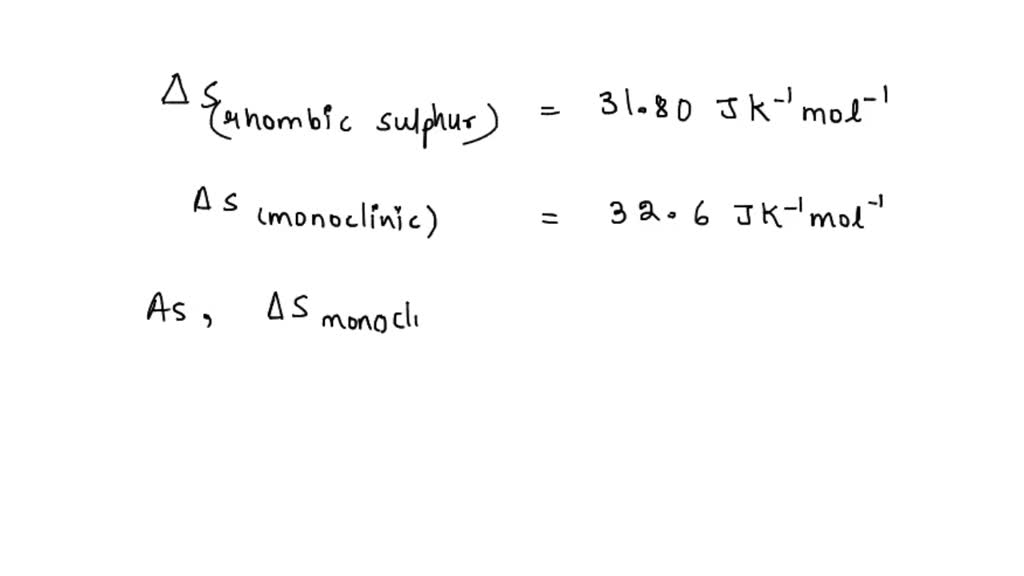 ΔS(rhombic sulphur) = 31.80 JK⁻¹mol⁻¹
ΔS (monoclinic) = 32.6 JK⁻¹mol⁻¹
As, ΔS monocli